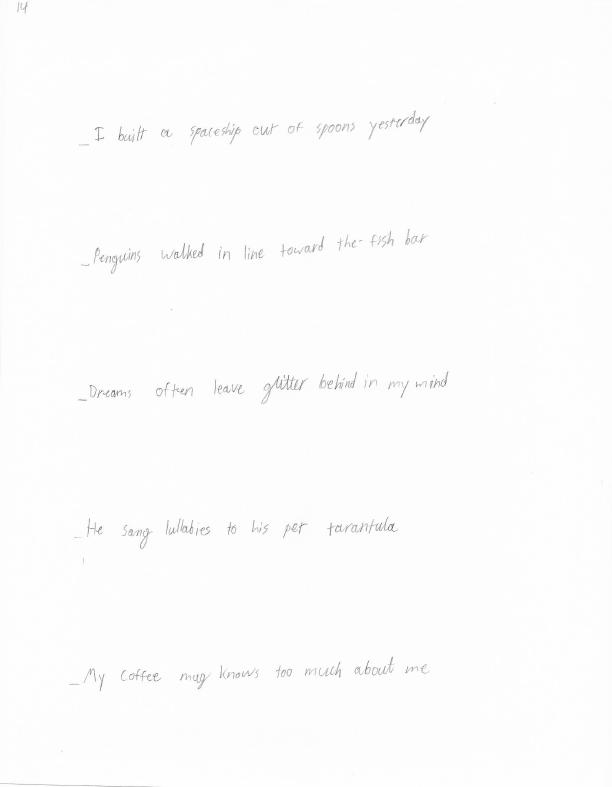 14
_I built a spaceship out of spoons yesterday
_Penguins walked in line toward the fish bar
_Dreams often leave glitter behind in my mind
_He sang lullabies to his pet tarantula
_My coffee mug knows too much about me